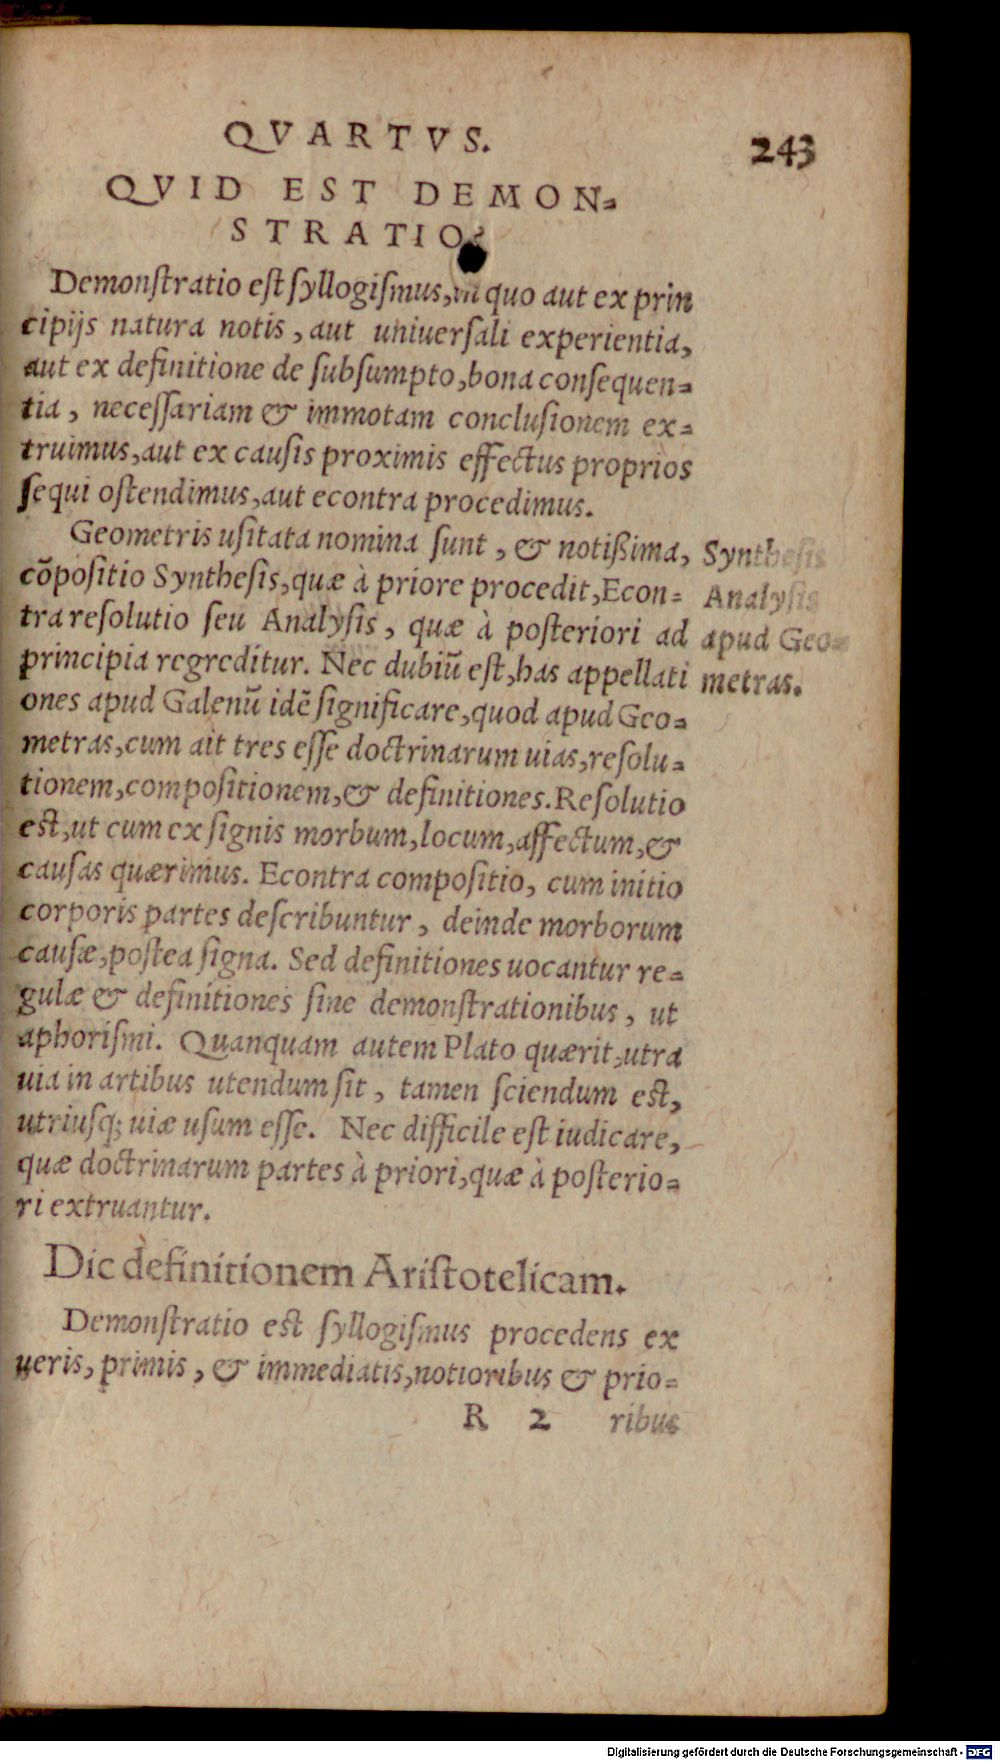 QVARTVS.
243
QVID EST DEMON-
STRATIO?
Demonſtratio eſt ſyllogiſmus, in quo aut ex prin
cipijs natura notis, aut uniuerſali experientia,
aut ex definitione de ſubſumpto, bona conſequen-
tia, neceſſariam & immotam concluſionem ex-
truimus, aut ex cauſis proximis effectus proprios
ſequi oſtendimus, aut econtra procedimus.
Geometris uſitata nomina ſunt, & notißima,
cõpoſitio Syntheſis, quæ à priore procedit, Econ-
tra reſolutio ſeu Analyſis, quæ à poſteriori ad
principia regreditur. Nec dubiũ eſt, has appellati
ones apud Galenũ idẽ ſignificare, quod apud Geo-
metras, cum ait tres eſſe doctrinarum uias, reſolu-
tionem, compoſitionem, & definitiones. Reſolutio
eſt, ut cum ex ſignis morbum, locum, affectum, &
cauſas quærimus. Econtra compoſitio, cum initio
corporis partes deſcribuntur, deinde morborum
cauſæ, poſtea ſigna. Sed definitiones uocantur re-
gulæ & definitiones ſine demonſtrationibus, ut
aphoriſmi. Quanquam autem Plato quærit, utra
uia in artibus utendum ſit, tamen ſciendum eſt,
utriuſq; uiæ uſum eſſe. Nec difficile eſt iudicare,
quæ doctrinarum partes à priori, quæ à poſterio-
ri extruantur.
Syntheſis
Analyſis
apud Geo-
metras.
Dic definitionem Ariſtotelicam.
Demonſtratio eſt ſyllogiſmus procedens ex
ueris, primis, & immediatis, notioribus & prio-
R 2 ribus
Digitalisierung gefördert durch die Deutsche Forschungsgemeinschaft - DFG